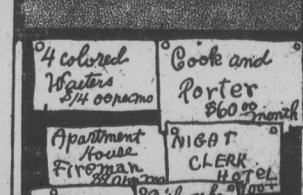 4 colored
Waiters
$14 00 per mo
Cook and
Porter
$60 00
month
Apartment
House
Fireman
NIGHT
CLERK
HOTEL